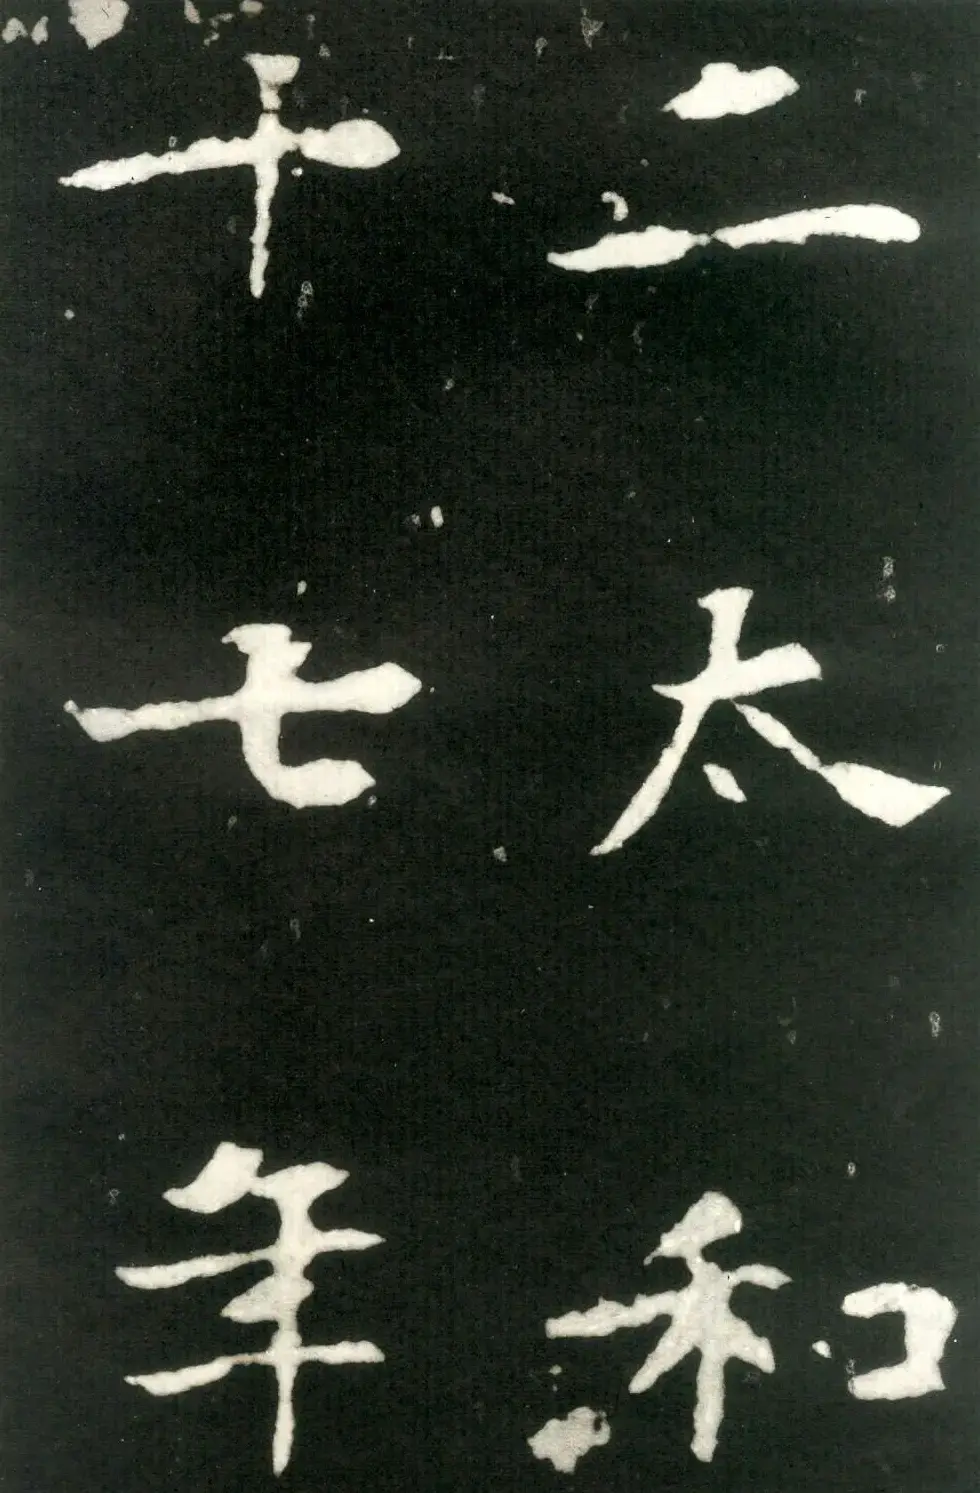 二太和
十七年